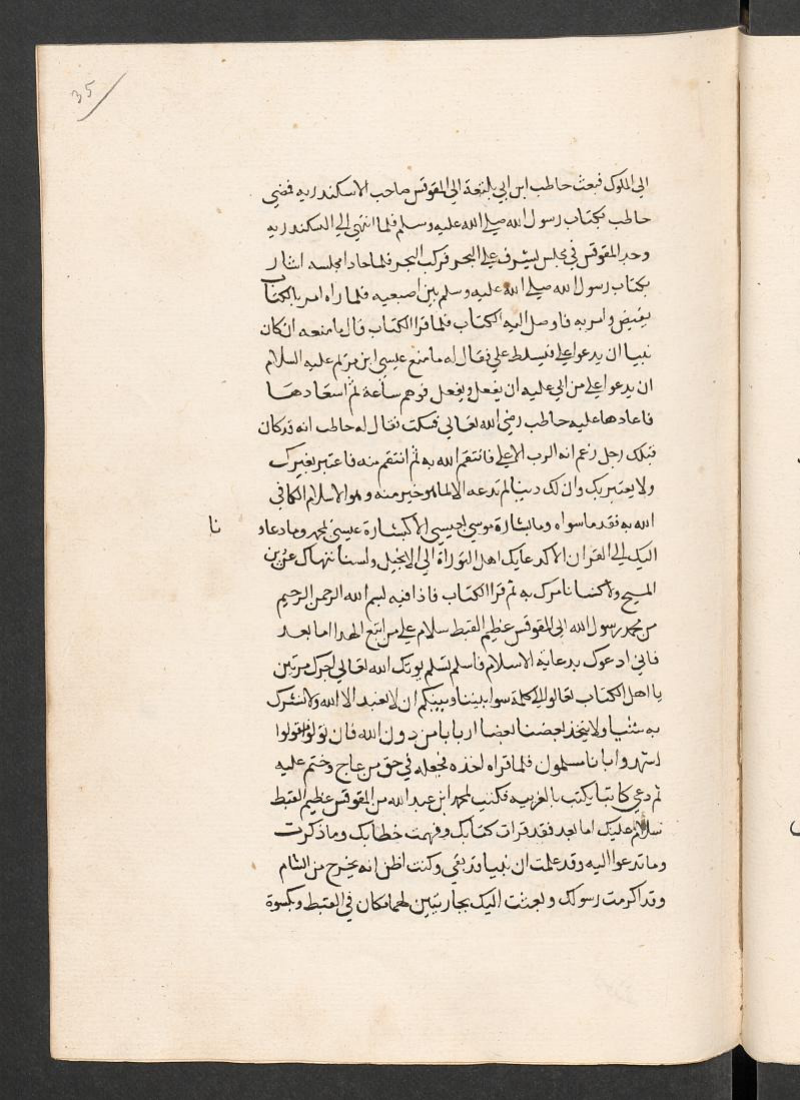 35
الى الملوك فبعث حاطب ابن ابي بلتعة الى المقوقس صاحب الاسكندريه فمضي
حاطب بكتاب رسول الله صلى الله عليه وسلم فلما انتهي الى السكندريه
وجد المقوقس في مجلس يشرف على البحر فركب البحر فلما حاذا مجلسه اشار
بكتاب رسول الله صلى الله عليه وسلم بين اصبعيه فلما راه امر بالكتاب
يقبض وامر به فاوصل اليه الكتاب فلما قرا الكتاب قال ما منعه ان كان
نبيا ان يدعوا على فيسلط علي فقال له ما منع عيسى ابن مريم عليه السلام
ان يدعوا على من ابي عليه ان يفعل ويفعل فوهم ساعة ثم استعادها
فاعادها عليه حاطب رضي الله تعالى فسكت فقال له حاطب انه قد كان
قبلك رجل زعم انه الرب الاعلى فانتقم الله به ثم انتقم منه فاعتبر بغيرك
ولا يعتبر بك وان لك دينا لم تدعه الا لما هو خير منه وهو الاسلام الكافي
الله به فقد ما سواه وما بشارة موسي بعيسي الا كبشارة عيسى لمحمد وما دعاو
نا
اليك الى القران الا كدعايك اهل التوراة الى الانجيل ولسنا ننهاك عن دين
المسيح ولاكننا نامرك به ثم قرا الكتاب فاذا فيه بسم الله الرحمن الرحيم
من محمد رسول الله الى المقوقس عظيم القبط سلام على من اتبع الهدا اما بعد
فاني ادعوك بدعاية الاسلام فاسلم تسلم يوتك الله تعالى اجرك مرتين
يا اهل الكتاب تعالوا الى كلمة سوا بيننا وبينكم ان لا نعبد الا الله ولا نشرك
به شئيا ولا يتخذ بعضنا بعضا اربابا من دون الله فان تولوا فقولوا
اشهدوا بانا مسلمون فلما قراه اخذه فجعله في حق من عاج وختم عليه
ثم دعي كاتبا يكتب بالعربيه فكتب لمحمد ابن عبد الله من المقوقس عظيم القبط
سلام عليك اما بعد فقد قرات كتابك وفهمت خطابك وما ذكرت
وما تدعوا اليه وقد علمت ان نبيا قد بقي وكنت اظن انه يخرج من الشام
وقد اكرمت رسولك وبعثت اليك بجاريتين لهما مكان في القبط وبكسوة